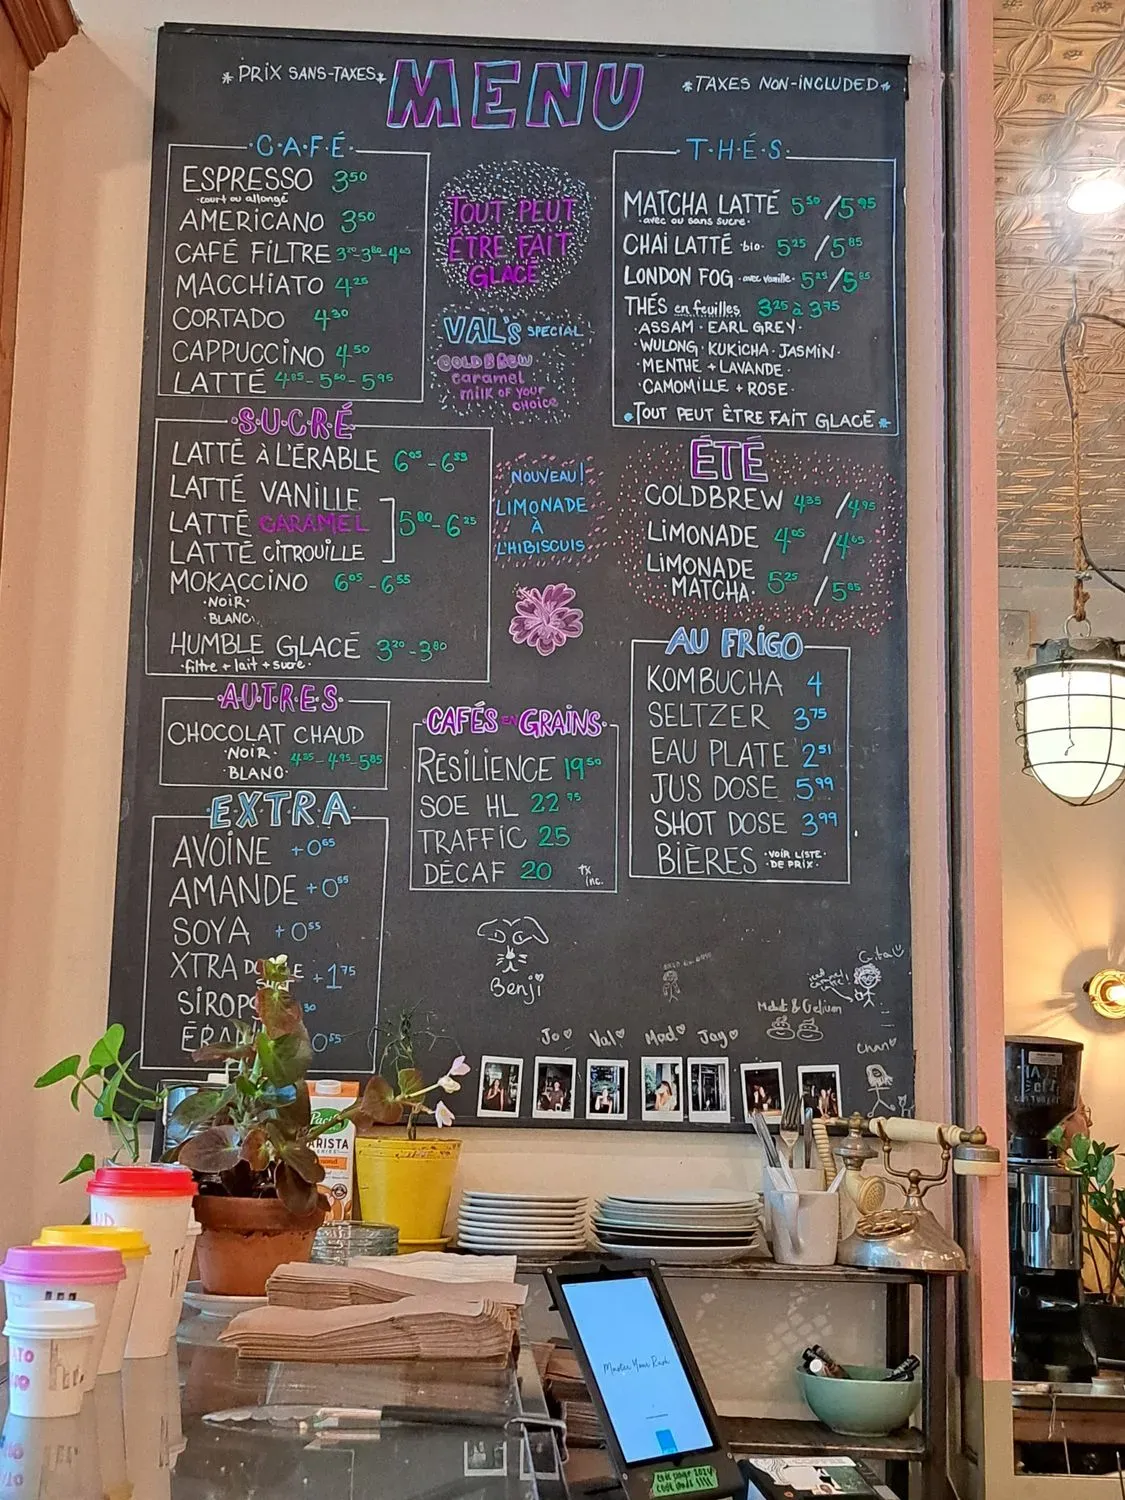 *PRIX SANS-TAXES*
MENU
*TAXES NON-INCLUDED*
·C·A·F·É·
ESPRESSO 3⁵⁰
·court ou allongé
AMERICANO 3⁵⁰
CAFÉ FILTRE
MACCHIATO 4²⁵
CORTADO 4³⁰
CAPPUCCINO 4⁵⁰
LATTÉ 4⁸⁵-5⁵⁰-5⁹⁵
TOUT PEUT
ÊTRE FAIT
GLACÉ
VAL'S SPECIAL
COLDBREW
caramel
milk of your
choice
T·H·É·S·
MATCHA LATTÉ 5⁵⁰/5⁹⁵
·avec ou sans sucre·
CHAI LATTÉ ·bio· 5²⁵/5⁸⁵
LONDON FOG ·avec vanille· 5²⁵/5⁸⁵
THÉS en feuilles 3²⁵ à 3⁷⁵
·ASSAM·EARL GREY·
WULONG·KUKICHA·JASMIN·
·MENTHE + LAVANDE·
·CAMOMILLE + ROSE·
*TOUT PEUT ÊTRE FAIT GLACÉ*
·S·U·C·R·É
LATTÉ À L'ÉRABLE 6⁰⁵-6⁵⁵
LATTÉ VANILLE
LATTÉ CARAMEL 5⁸⁰-6²⁵
LATTÉ CITROUILLE
MOKACCINO 6⁰⁵-6⁵⁵
·NOIR·
·BLANC·
HUMBLE GLACÉ 3²⁰-3⁸⁰
·filtre + lait + sucre·
NOUVEAU!
LIMONADE
À
L'HIBISCUIS
ÉTÉ
COLDBREW 4³⁵/4⁹⁵
LIMONADE 4⁰⁵/4⁶⁵
LIMONADE
MATCHA 5²⁵/5⁸⁵
·A·U·T·R·E·S·
CHOCOLAT CHAUD
·NOIR·
·BLANC·
CAFÉS EN GRAINS
RÉSILIENCE 19⁵⁰
SOE HL 22⁷⁵
TRAFFIC 25
DÉCAF 20
tx
inc.
AU FRIGO
KOMBUCHA 4
SELTZER 3⁷⁵
EAU PLATE 2⁵¹
JUS DOSE 5⁹⁹
SHOT DOSE 3⁹⁹
BIÈRES ·VOIR LISTE·
·DE PRIX·
·E·X·T·R·A·
AVOINE +0⁶⁵
AMANDE +0⁵⁵
SOYA +0⁵⁵
XTRA +1⁷⁵
SIROPS
Benji
Jo
Val
Mad
Jay
BARISTA